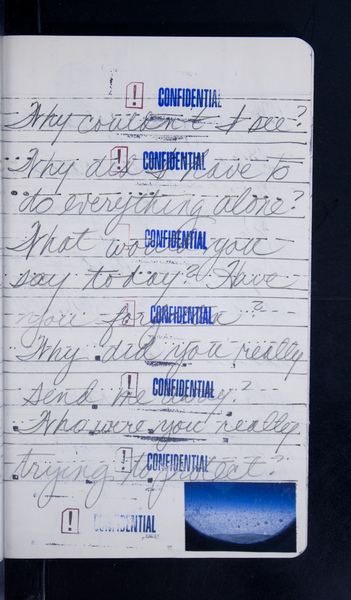 ! CONFIDENTIAL
Why couldn't I see?
! CONFIDENTIAL
Why did I have to
do everything alone?
CONFIDENTIAL
What would you
say today? Have
! CONFIDENTIAL
you
Why did you really
! CONFIDENTIAL
send me away?
Who were you really
! CONFIDENTIAL
trying to protect?
! CONFIDENTIAL